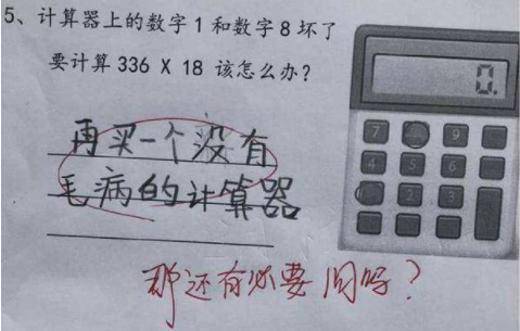 5、计算器上的数字1和数字8坏了
要计算336 X 18 该怎么办?
0.
再买一个没有
毛病的计算器
7
9
4
5
6
2
3
那还有必要问吗?